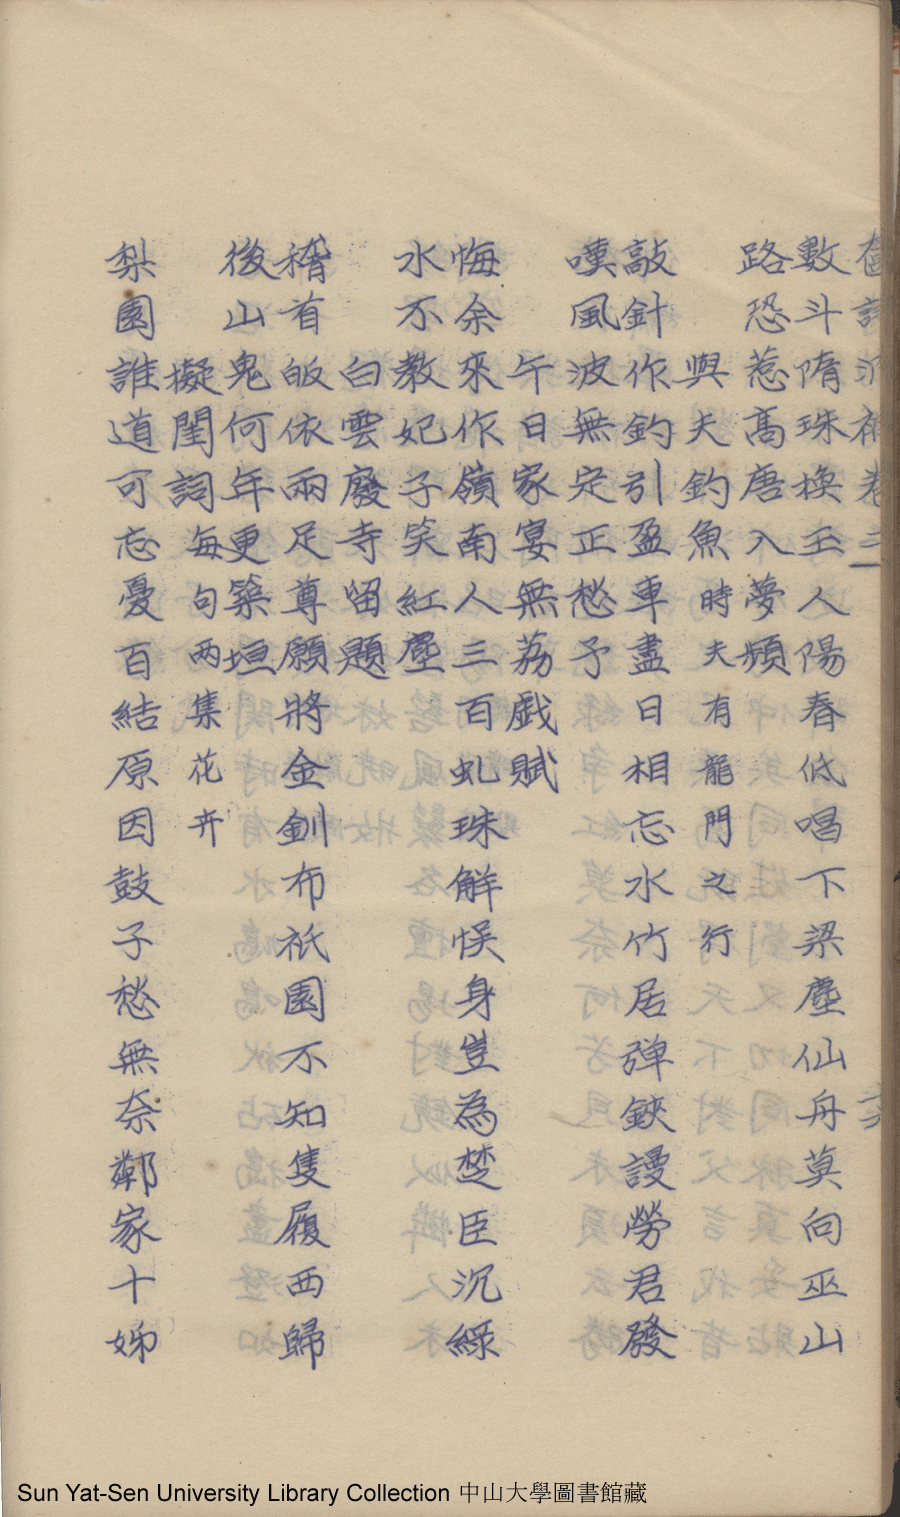 數斗隋珠換玉人陽春低唱下梁塵仙舟莫向巫山
路恐惹高唐入夢頻
與夫釣魚時夫有龍門之行
敲針作釣引盈車盡日相忘水竹居彈鋏謾勞君發
嘆風波無定正愁予
午日家宴無荔戲賦
悔余來作嶺南人三百虬珠解悮身豈為楚臣沉綠
水不教妃子笑紅塵
白雲廢寺留題
稽首皈依兩足尊願將金釧布祇園不知隻履西歸
後山鬼何年更築垣
擬閨詞每句两集花卉
梨園誰道可忘憂百結原因鼓子愁無奈鄰家十姊
Sun Yat-Sen University Library Collection 中山大學圖書館藏